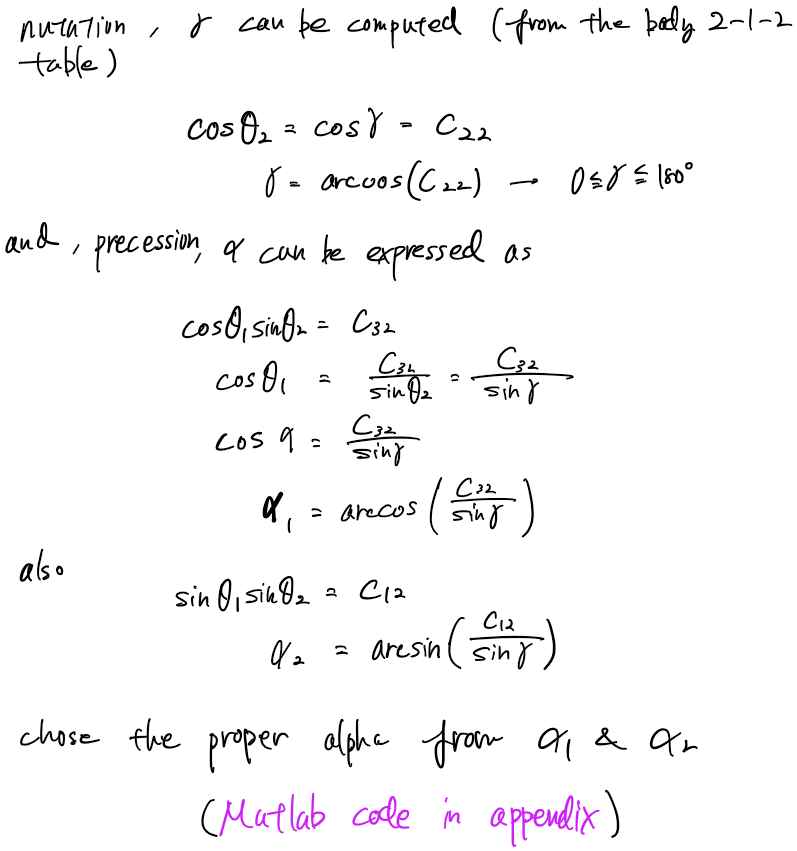 nutation, γ can be computed (from the body 2-1-2
table)
cosθ₂ = cosγ = C₂₂
γ = arcuos(C₂₂) → 0≦γ≦180°
and, precession, α can be expressed as
cosθ₁sinθ₂ = C₃₂
cosθ₁ = C₃₂/sinθ₂ = C₃₂/sinγ
cos α = C₃₂/sinγ
α₁ = arccos(C₃₂/sinγ)
also
sinθ₁sinθ₂ = C₁₂
α₂ = arcsin(C₁₂/sinγ)
chose the proper alpha from α₁ & α₂
(Matlab code in appendix)